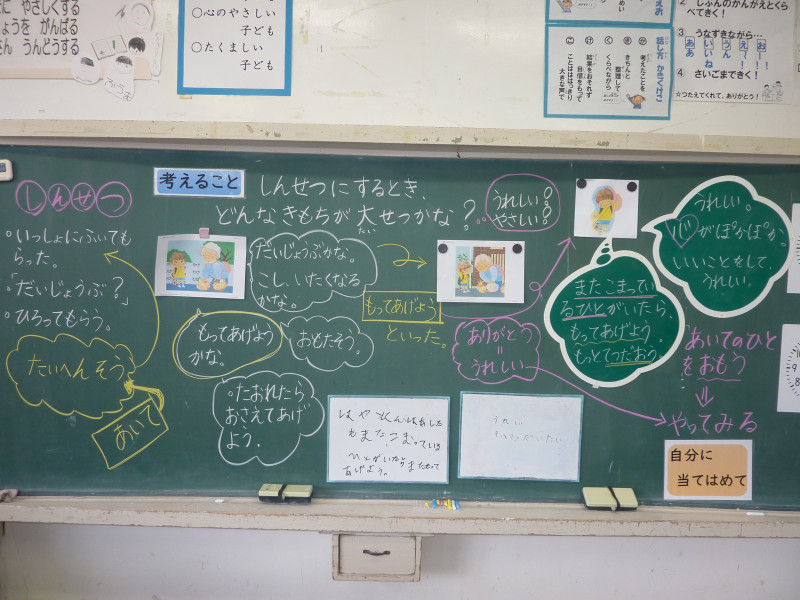 に やさしくする
ょうを がんばる
さん うんどうする
○心のやさしい
子ども
○たくましい
子ども
話し方 かきくけこ
か 考えたことを
き きちんと
整理して
く くらべながら
け 結果をおそれず
自信をもって
こ ことばはっきり
大きな声で
② じぶんのかんがえとくら
べてきく！
③ うなずきながら…
ああ
いいね
うん
え～！
お！！
④ さいごまできく！
☆つたえてくれて、ありがとう！
しんせつ
。いっしょにふいても
らった。
。「だいじょうぶ？」
。ひろってもらう。
たいへんそう
あいて
考えること
しんせつにするとき、
どんなきもちが大せつかな？
たい
うれしい？
やさしい？
だいじょうぶかな。
こし、いたくなる
かな。
もってあげよう
かな。
おもたそう。
。たおれたら、
おさえてあげ
よう。
もってあげよう
といった。
ありがとう
＝
うれしい
またこまってい
るひとがいたら、
もってあげよう。
もっとてつだおう。
うれしい。
心がぽかぽか。
いいことをして、
うれしい。
あいてのひと
をおもう
⇓
やってみる
自分に
当てはめて
もまた、こまっている
ひとがいたら
あげよう。
うれしい